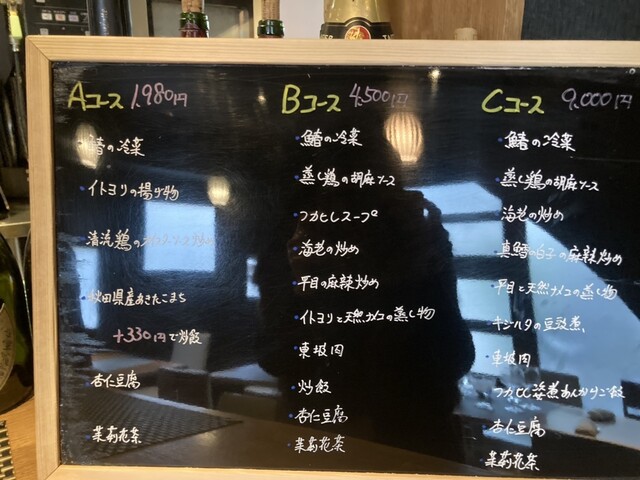 Aコース 1,980円
鰆の冷菜
イトヨリの揚げ物
清流鶏の
炒め
秋田県産あきたこまち
+330円で炒飯
杏仁豆腐
茉莉花茶
Bコース 4,500円
鰆の冷菜
蒸し鶏の胡麻ソース
フカヒレスープ
海老の炒め
平目の麻辣炒め
イトヨリと天然ナメコの蒸し物
東坡肉
炒飯
杏仁豆腐
茉莉花茶
Cコース 9,000円
鰆の冷菜
蒸し鶏の胡麻ソース
海老の炒め
真鱈の白子の麻辣炒め
平目と天然ナメコの蒸し物
キジハタの豆豉煮
東坡肉
フカヒレ姿煮あんかけご飯
杏仁豆腐
茉莉花茶